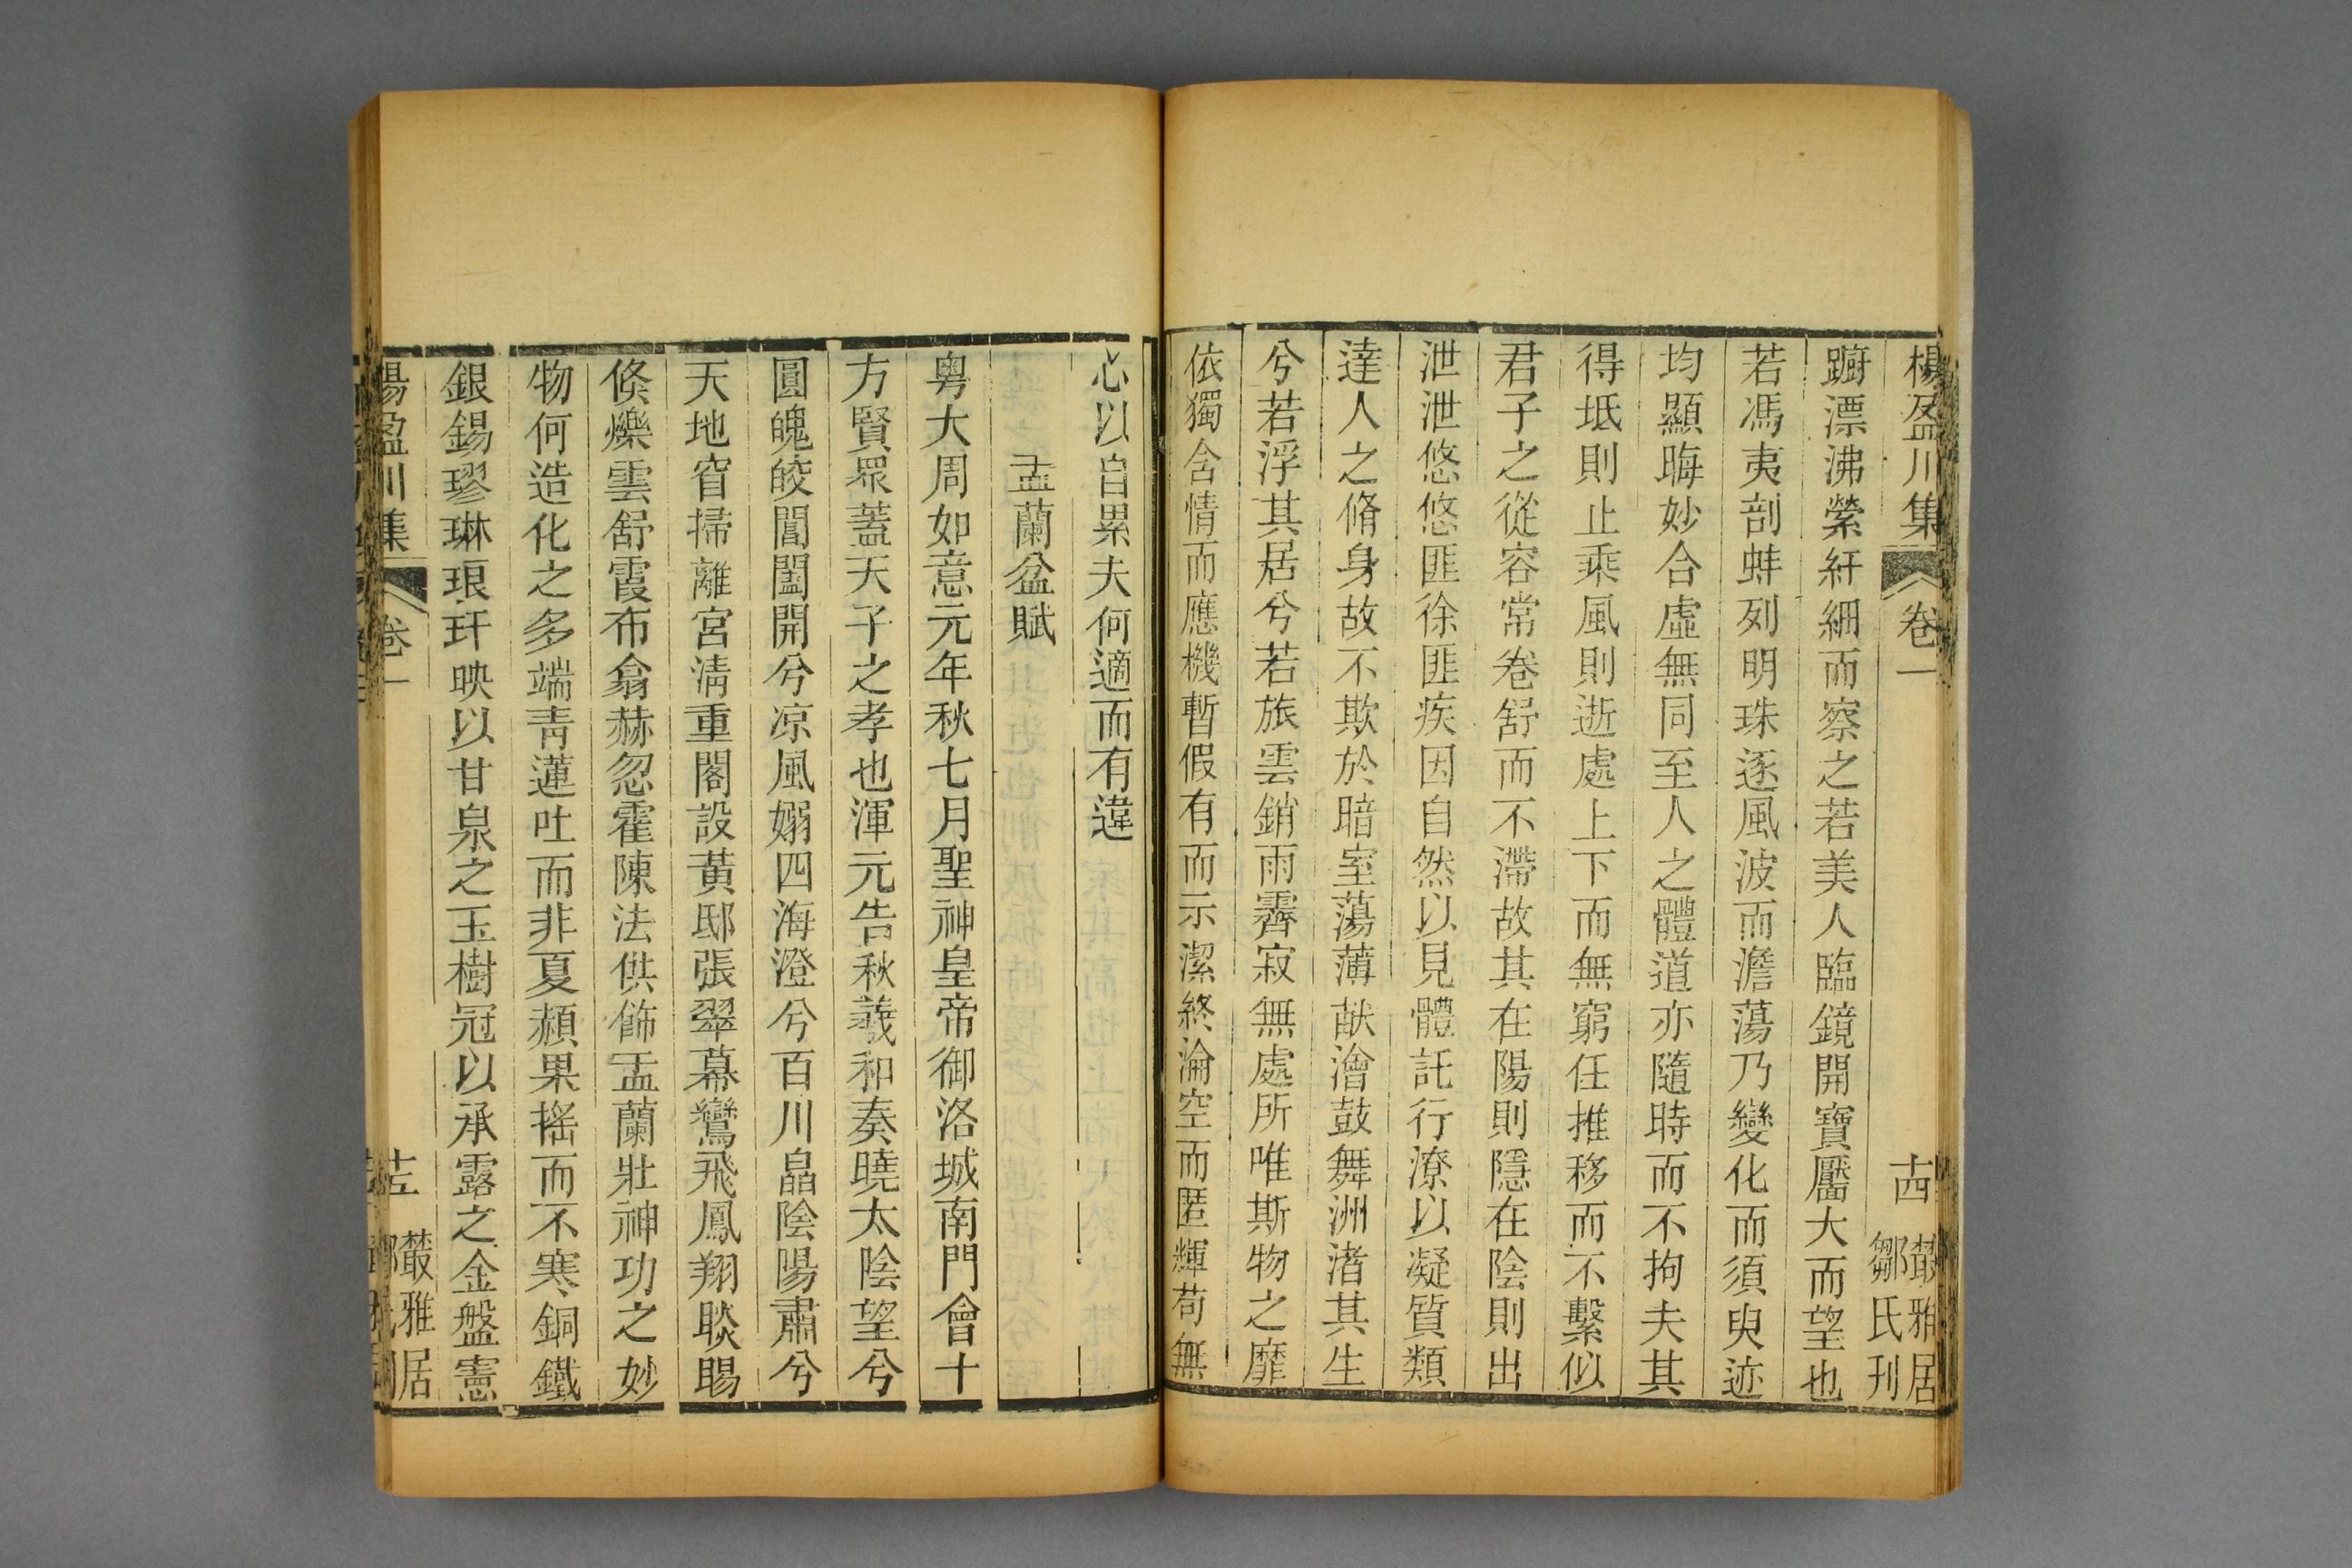 楊盈川集 卷一 十四 叢雅居
鄒氏刊
蹰漂沸縈紆細而察之若美人臨鏡開寶靨大而望也
若馮夷剖蚌列明珠逐風波而澹蕩乃變化而須臾迹
均顯晦妙合虛無同至人之體道亦隨時而不拘夫其
得坻則止乘風則逝處上下而無窮任推移而不繫似
君子之從容常卷舒而不滯故其在陽則隱在陰則出
泄泄悠悠匪徐匪疾因自然以見體託行潦以凝質類
達人之脩身故不欺於暗室蕩薄畎澮鼓舞洲渚其生
兮若浮其居兮若旅雲銷雨霽寂無處所唯斯物之靡
依獨含情而應機暫假有而示潔終淪空而匿輝苟無
心以自累夫何適而有違
盂蘭盆賦
粵大周如意元年秋七月聖神皇帝御洛城南門會十
方賢眾蓋天子之孝也渾元告秋羲和奏曉太陰望兮
圓魄皎閶闔開兮凉風嫋四海澄兮百川皛陰陽肅兮
天地窅掃離宮淸重閣設黃邸張翠幕鸞飛鳳翔睒賜
倏爍雲舒霞布翕赫忽霍陳法供飾盂蘭壯神功之妙
物何造化之多端靑蓮吐而非夏頳果搖而不寒銅鐵
銀錫璆琳琅玕映以甘泉之玉樹冠以承露之金盤憲
楊盈川集 卷一 十五 叢雅居